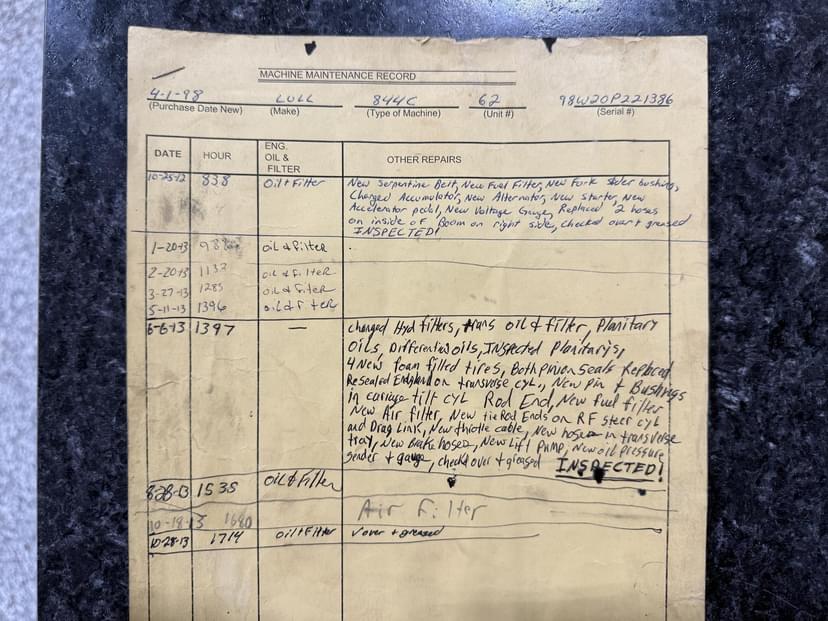 MACHINE MAINTENANCE RECORD
4-1-98 LULL 844C 62 98W20P221386
(Purchase Date New) (Make) (Type of Machine) (Unit #) (Serial #)
DATE HOUR ENG. OIL & FILTER OTHER REPAIRS
10-25-12 838 Oil + Filter New Serpentine Belt, New Fuel Filter, New Fork slider bushing,
Charged Accumulator, New Alternator, New Starter, New
Accelerator pedal, New Voltage Gauge, Replaced 2 hoses
on inside of Boom on right side, checked over + greased
INSPECTED!
1-20-13 oil & Filter
2-20-13 1133 oil & Filter
3-27-13 1285 oil & Filter
5-11-13 1396 oil & Filter
6-6-13 1397 — changed Hyd filters, trans oil & filter, Planitary
Oils, Differential oils, INSpected Planitarys,
4 New foam filled tires, Both pinion seals Replaced
Resealed End gland on transverse cyl., New pin + Bushings
in carriage tilt cyl Rod End, New Fuel filter
New Air filter, New tie Rod Ends on RF steer cyl
and Drag Link, New throttle cable, New hoses in transverse
tray, New Brake hoses, New Lift pump, New oil pressure
sender + gauge, checkd over + greased INSPECTED!
8-28-13 1535 oil & Filter
10-19-13 1680 Air Filter
10-28-13 1714 oil + Filter ✓ over + greased